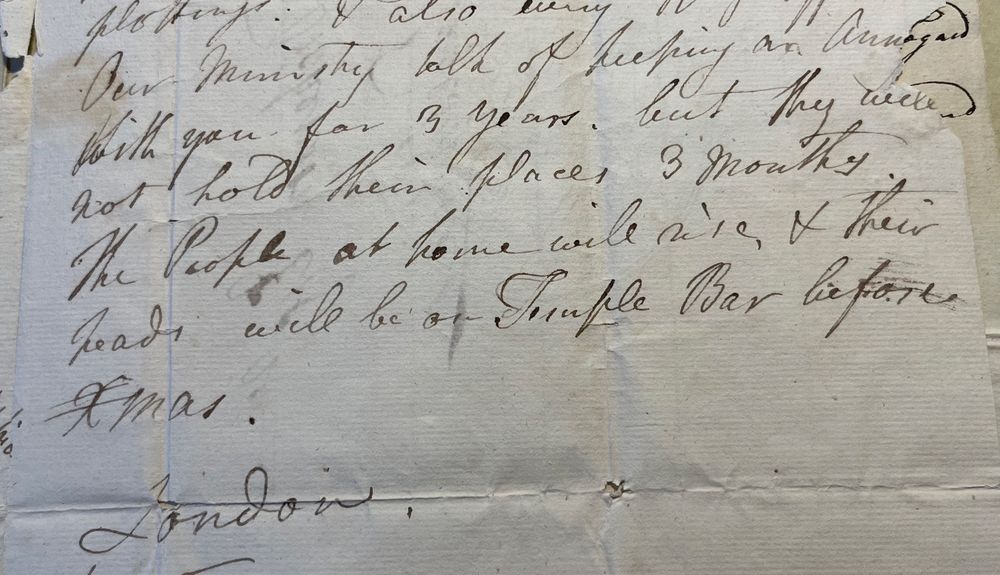 plottings. & also every
Our Ministry talk of keeping an Armagard
With you for 3 years. but they will
not hold their places 3 months.
The People at home will rise, & their
heads will be on Temple Bar before
Xmas.
London.